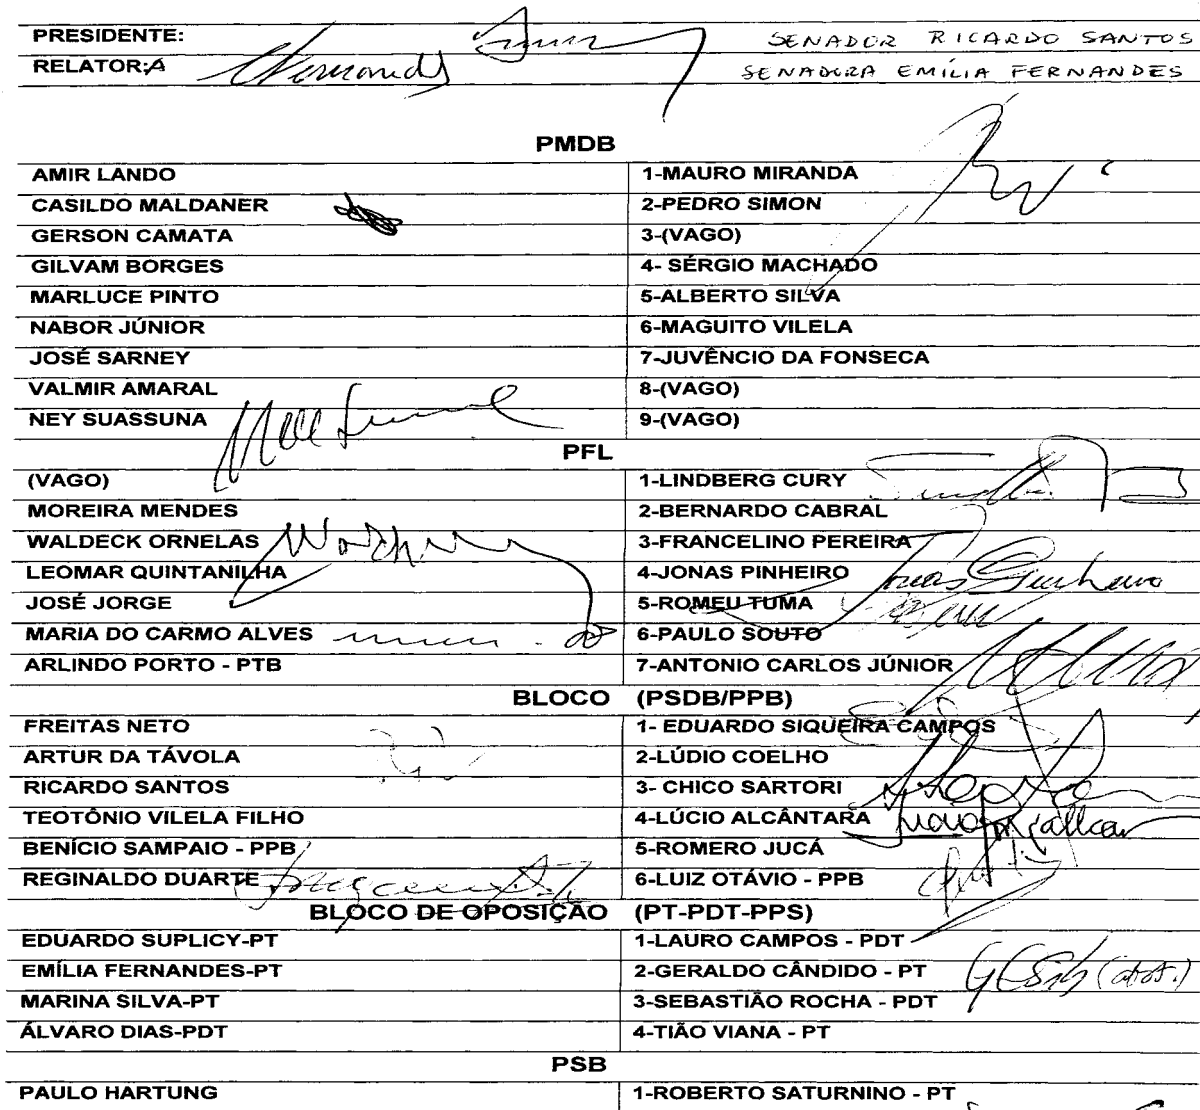 PRESIDENTE: SENADOR RICARDO SANTOS
RELATOR:A Fernandes SENADORA EMÍLIA FERNANDES
PMDB
AMIR LANDO 1-MAURO MIRANDA
CASILDO MALDANER 2-PEDRO SIMON
GERSON CAMATA 3-(VAGO)
GILVAM BORGES 4- SÉRGIO MACHADO
MARLUCE PINTO 5-ALBERTO SILVA
NABOR JÚNIOR 6-MAGUITO VILELA
JOSÉ SARNEY 7-JUVÊNCIO DA FONSECA
VALMIR AMARAL 8-(VAGO)
NEY SUASSUNA 9-(VAGO)
PFL
(VAGO) 1-LINDBERG CURY
MOREIRA MENDES 2-BERNARDO CABRAL
WALDECK ORNELAS 3-FRANCELINO PEREIRA
LEOMAR QUINTANILHA 4-JONAS PINHEIRO Jonas Pinheiro
JOSÉ JORGE 5-ROMEU TUMA
MARIA DO CARMO ALVES 6-PAULO SOUTO
ARLINDO PORTO - PTB 7-ANTONIO CARLOS JÚNIOR
BLOCO (PSDB/PPB)
FREITAS NETO 1- EDUARDO SIQUEIRA CAMPOS
ARTUR DA TÁVOLA 2-LÚDIO COELHO
RICARDO SANTOS 3- CHICO SARTORI
TEOTÔNIO VILELA FILHO 4-LÚCIO ALCÂNTARA
BENÍCIO SAMPAIO - PPB 5-ROMERO JUCÁ
REGINALDO DUARTE 6-LUIZ OTÁVIO - PPB
BLOCO DE OPOSIÇÃO (PT-PDT-PPS)
EDUARDO SUPLICY-PT 1-LAURO CAMPOS - PDT
EMÍLIA FERNANDES-PT 2-GERALDO CÂNDIDO - PT
MARINA SILVA-PT 3-SEBASTIÃO ROCHA - PDT
ÁLVARO DIAS-PDT 4-TIÃO VIANA - PT
PSB
PAULO HARTUNG 1-ROBERTO SATURNINO - PT